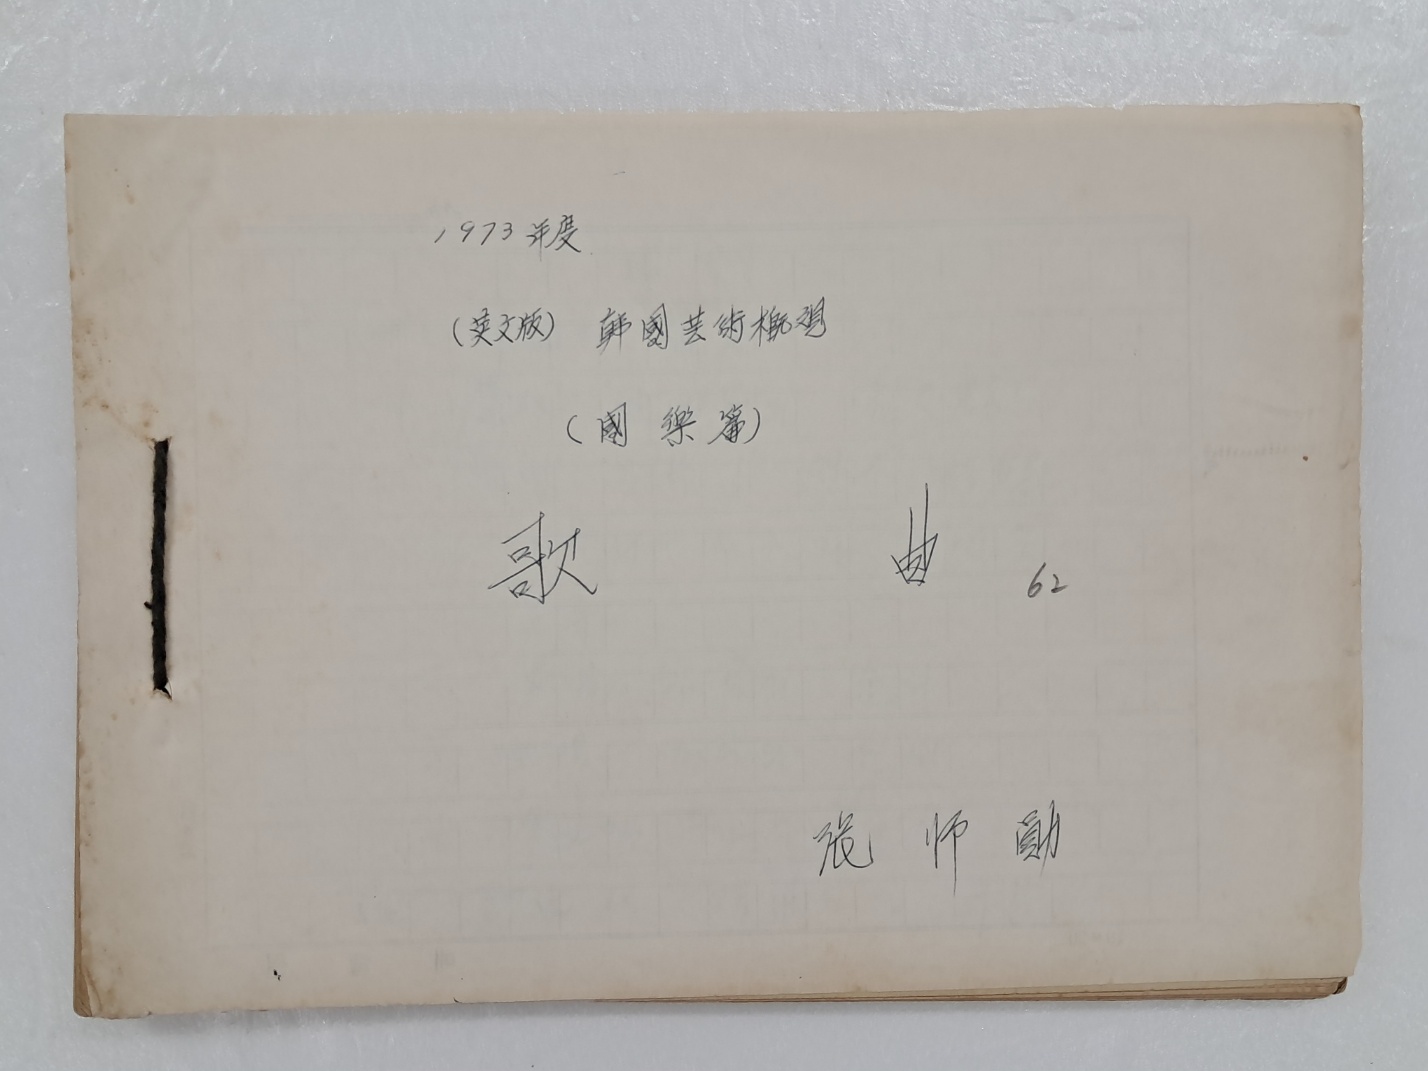 1973 年度
(英文版) 韩國芸術概观
(國樂篇)
歌 曲 62
張师勛